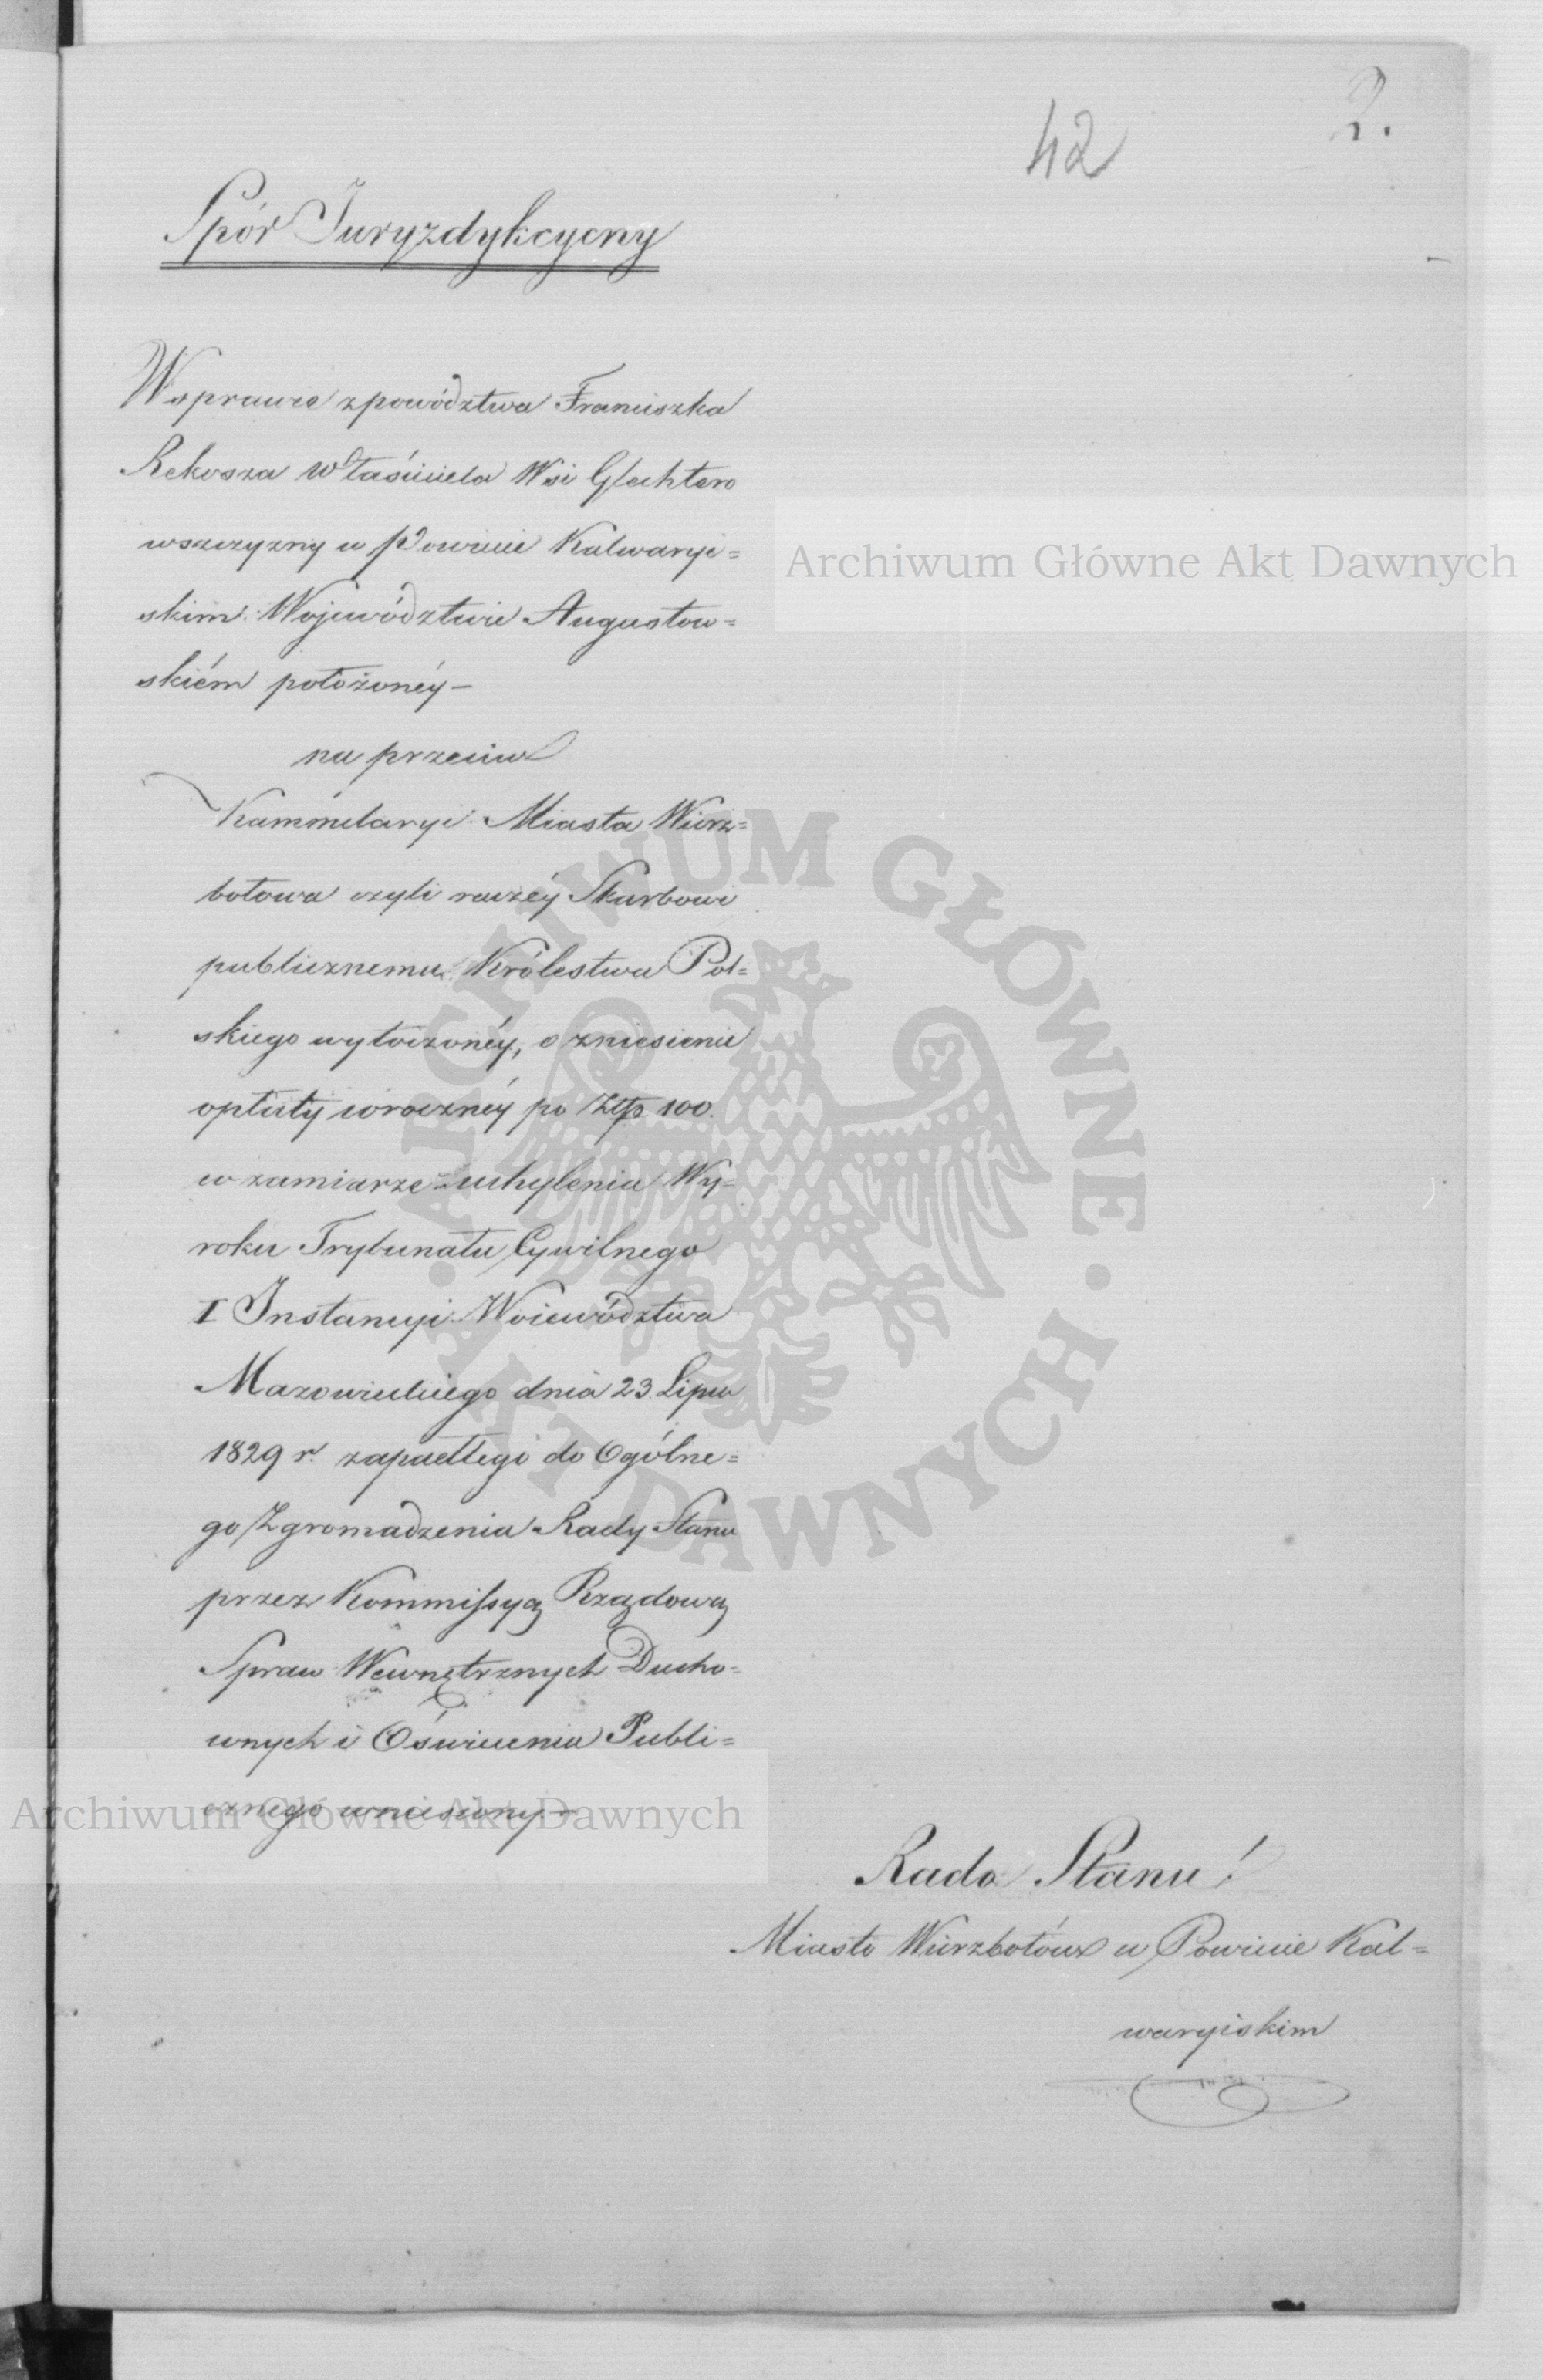 42
2.
Spór Juryzdykcyiny
W sprawie z powództwa Franciszka
Rekosza Właściciela Wsi Glechtero
wszczyzny w Powiecie Kalwaryi=
skim Województwie Augustow=
skiém położonéy —
na przeciw
Kammelaryi Miasta Wierz=
bołowa czyli raczéy Skarbowi
publicznemu Królestwa Pol=
skiego wytoczonéy, o zniesienie
opłaty coroczneý po Złp 100.
w zamiarze uchylenia Wy=
roku Trybunału Cywilnego
I Instancyi Woiewództwa
Mazowieckiego dnia 23 Lipca
1829 r. zapadłego do Ogólne=
go Zgromadzenia Rady Stanu
przez Kommissyą Rządową
Spraw Wewnętrznych Ducho=
wnych i Oświecenia Publi=
cznego wniesiony. —
Rado Stanu!
Miasto Wierzbołów w Powiecie Kal=
waryiskim
Archiwum Główne Akt Dawnych
ARCHIWUM GŁÓWNE · AKT DAWNYCH ·
Archiwum Główne Akt Dawnych